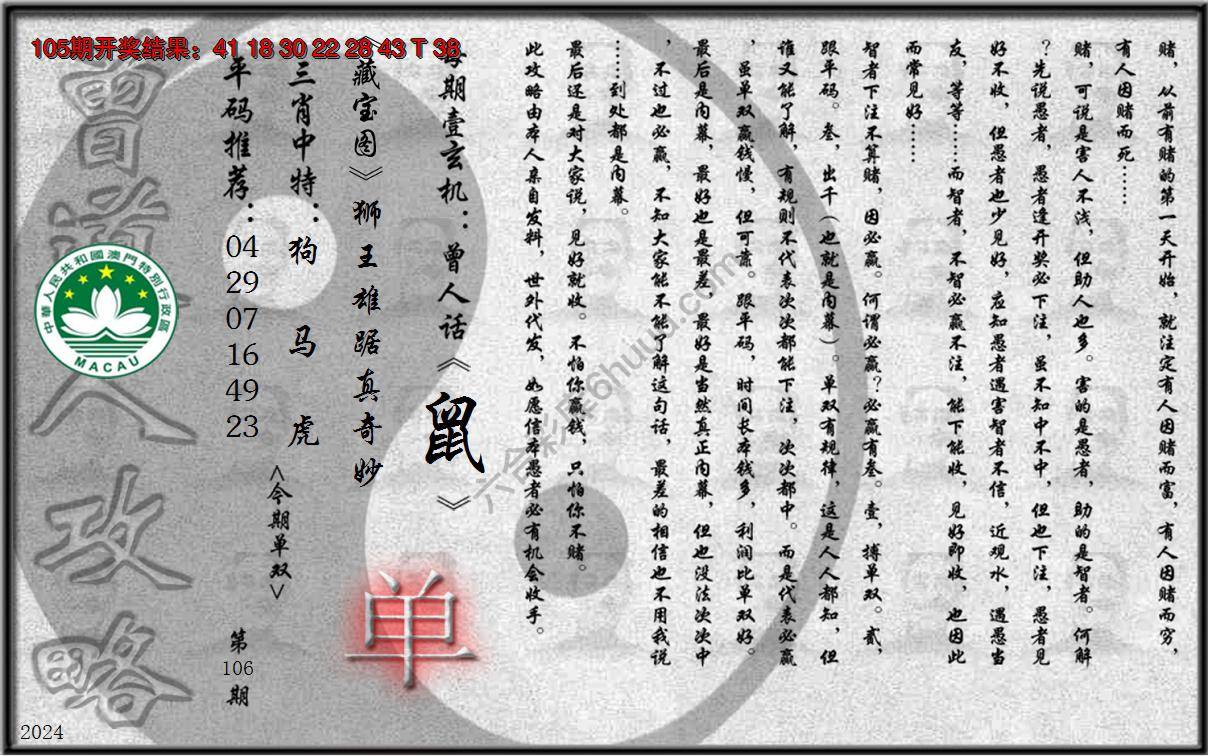 105期开奖结果：41 18 30 22 28 43 T 38
赌，从前有赌的第一天开始，就注定有人因赌而富，有人因赌而穷，
有人因赌而死……
赌，可说是害人不浅，但助人也多。害的是愚者，助的是智者。何解
？先说愚者，愚者逢开奖必下注，虽不知中不中，但也下注，愚者见
好不收，但愚者也少见好，应知愚者遇害智者不信，近观水，遇愚当
友，等等……而智者，不智必赢不注，能下能收，见好即收，也因此
而常见好……
智者下注不算赌，因必赢。何谓必赢？必赢有叁。壹，搏单双。贰，
跟平码。叁，出千（也就是内幕）。单双有规律，这是人人都知，但
谁又能了解，有规则不代表次次都能下注，次次都中。而是代表必赢
，虽单双赢钱慢，但可靠。跟平码，时间长本钱多，利润比单双好。
最后是内幕，最好也是最差，最好是当然真正内幕，但也没法次次中
，不过也必赢，不知大家能不能了解这句话，最差的相信也不用我说
……到处都是内幕。
最后还是对大家说，见好就收。不怕你赢钱，只怕你不赌。
此攻略由本人亲自发料，世外代发，如愿信本愚者必有机会收手。
每期壹玄机：曾人话《鼠》
《藏宝图》狮王雄踞真奇妙
三肖中特：狗 马 虎
平码推荐：
04
29
07
16
49
23
<今期单双>
单
第
106
期
曾道人攻略
中華人民共和國澳門特別行政區
MACAU
六合彩库6huuu.com
2024